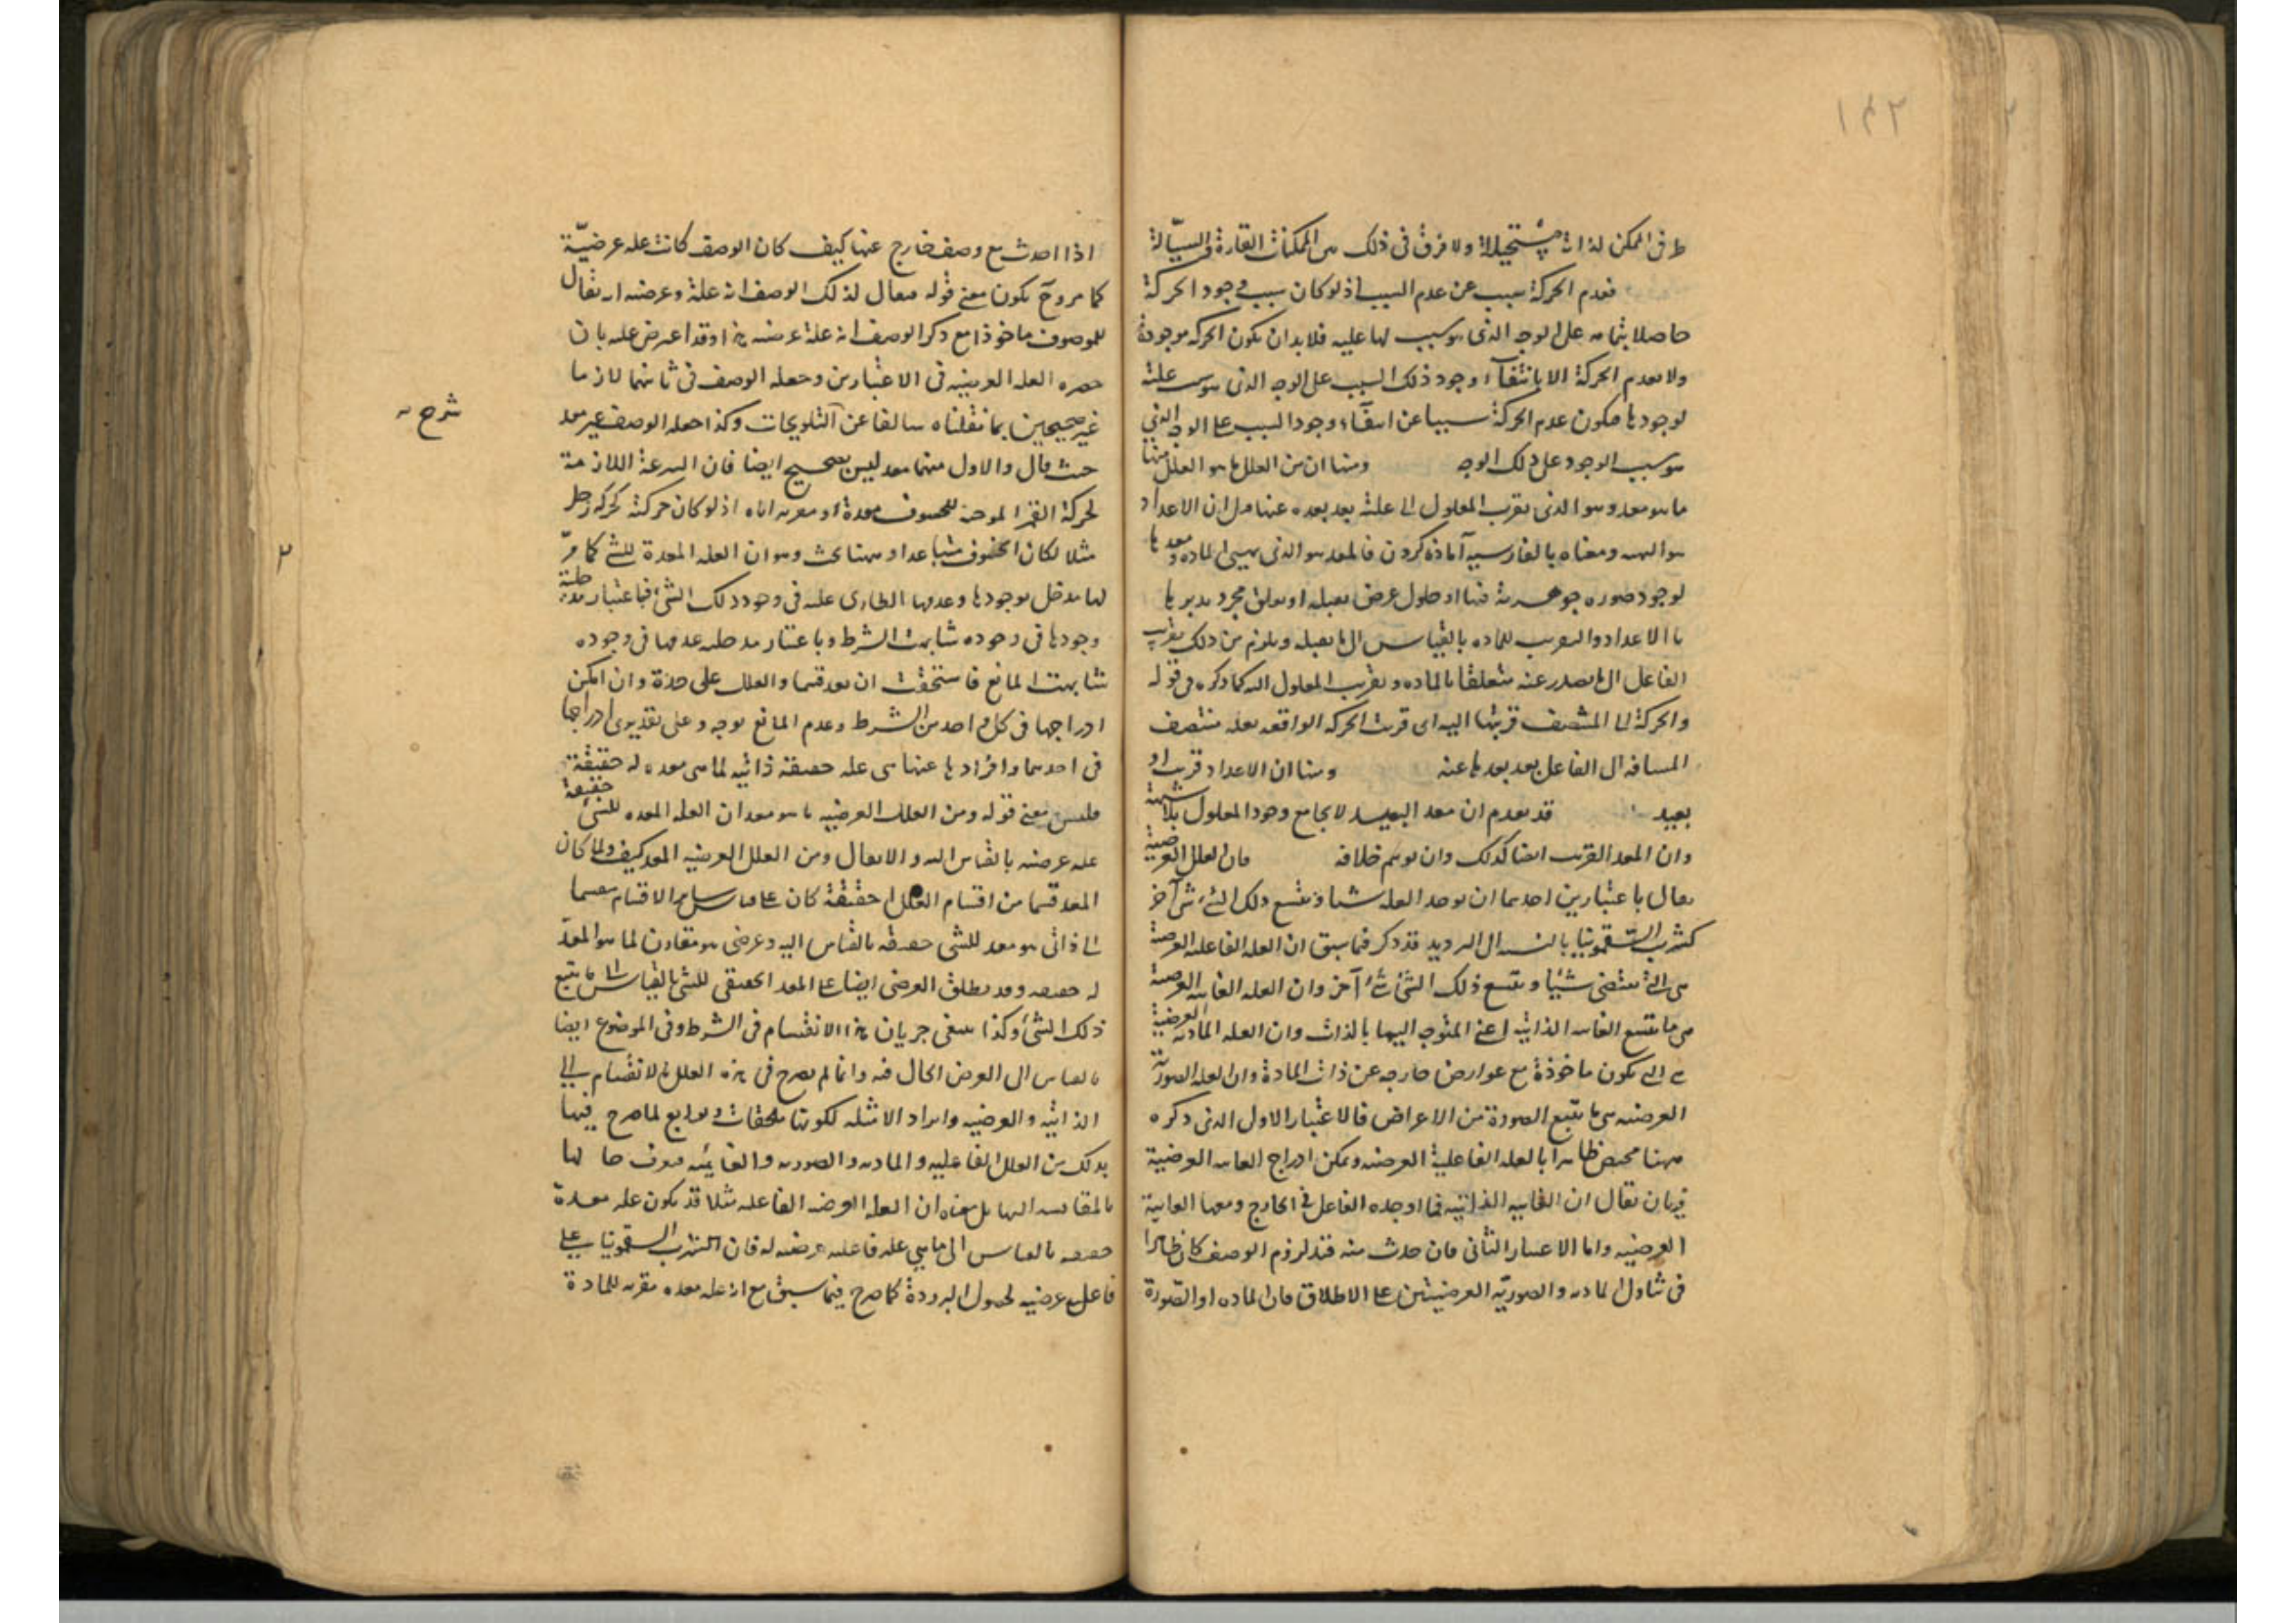 ١٤٢
طرفى الممكن لذاته مستحيلا ولا فرق فى ذلك من الممكنات القارة والسيالة
فعدم الحركة سبب عن عدم السبب اذ لو كان سبب وجود الحركة
حاصلا بتمامه على الوجه الذى هو سبب لها عليه فلا بد ان يكون الحركه موجودة
ولا ىعدم الحركة الا بانتفآء وجود ذلك السبب على الوجه الذى هو علته
لوجودها فىكون عدم الحركة سببا عن انتفآء وجود السبب على الوجه الذى
هو سبب الوجود على ذلك الوجه ومنها ان من العلل ما هو العلل منها
ما هو معد وهو الذى يقرب المعلول الى علته بعد بعده عنها فىل ان الاعداد
هو الىهىه ومعناه بالفارسيه آماده كردن فالمعد هو الذى يهيىء الماده ومعدها
لوجود صوره جوهرية فىها او حلول عرض ىقىله او ىعلق مجرد ىدىرها
ىا الاعداد والىقرىب للماده بالقياس الى ما ىقىله وىلزم من ذلك ىقرىب
الفاعل الى ما ىصدر عنه متعلقا بالماده وىقرىب المعلول الىه كما ذكره فى قوله
والحركة الى المنتصف قربتها اليه اى قربت الحركه الواقعه ىعد منتصف
المسافه الى الفاعل بعد بعدها عنه ومنها ان الاعداد قريب او
بعيد قد ىقدم ان معد البعيد لا يجامع وجود المعلول بلا شبهة
وان المعد القريب ايضا كذلك وان ىوهم خلافه فان العلل العرضية
ىقال باعتبارين احدهما ان ىوجد العله شيئا وىتبع ذلك الشىء شىء آخر
كشرب السقمونيا بالنسبة الى التبريد قد ذكر فيما سبق ان العله الفاعليه العرضىة
هى التى ىقتضى شيئا وىتبع ذلك الشىء شىء آخر وان العله الغائيه العرضىة
هى ما ىتبع الغاىه الذاتيه اعنى المتوجه اليها بالذات وان العله الماديه العرضية
هى التى ىكون ماخوذة مع عوارض خارجه عن ذات المادة وان العله الصورية
العرضىه هى ما ىتبع الصورة من الاعراض فالاعتبار الاول الذى ذكره
ههنا مختص ظاهرا بالعله الفاعلية العرضىه ويمكن ادراج الغاىه العرضية
فىه بان ىقال ان الغايه الذاتيه مما اوجده الفاعل فى الخارج وىتبعها الغاىية
العرضيه واما الاعتبار الثانى فان حدث منه قىد لزوم الوصف كان ظاهرا
فى تناول الماديه والصوريه العرضيتين على الاطلاق فان الماده او الصورة
اذا اخذت مع وصف خارج عنها كيف كان الوصف كانت عله عرضية
كما مر وح يكون معنى قوله فىقال لذلك الوصف انه علة وعرضىه ان ىقال
للموصوف ماخوذا مع ذكر الوصف انه علة عرضىه هذا وقد اعترض عله بان
حصره العله العرضيه فى الاعتبارين وجعله الوصف فى ثانيهما لازما
غير صحيحين بما نقلناه سالفا عن التلويحات وكذا جعله الوصف غير معد
شرح
حيث قال والاول منهما معد ليس بصحيح ايضا فان السرعة اللازمة
لحركة القمر الموجبه للخسوف معدة او مقربه اياه اذ لو كان حركته كحركة زحل
مثلا لكان الخسوف متباعدا وههنا بحث وهو ان العله المعدة للشىء كما مر
لها مدخل بوجودها وعدمها الطارى عله فى وجود ذلك الشىء فباعتبار مدخلية
وجودها فى وجوده شابهت الشرط وباعتبار مدخليه عدمها فى وجوده
شابهت المانع فاستحقت ان ىعد قسما والعلل على حدة وان امكن
ادراجها فى كل واحد من الشرط وعدم المانع بوجه وعلى تقديرى ادراجها
فى احدهما وافرادها عنها هى عله حقىقه ذاتيه لما هى معده له حقيقة
فليس معنى قوله ومن العلل العرضيه ما هو معد ان العله المعده للشىء حقيقة
عله عرضىه بالقياس اليه والا لقال ومن العلل العرضيه المعد كيف ولما كان
المعد قسما من اقسام العلل حقيقة كان على قياس سائر الاقسام منقسما
الى ذاتى هو معد للشى حقىقه بالقياس اليه وعرضى هو مقارن لما هو المعد
له حقىقه وقد ىطلق العرضى ايضا على المعد الحقيقى للشى بالقياس الى ما يتبع
ذلك الشىء وكذا ىنبغى جريان هذا الانقسام فى الشرط وفى الموضوع ايضا
بالقياس الى العرض الحال فيه وانما لم يصرح فى هذه العلل بالانقسام الى
الذاتيه والعرضيه واىراد الامثله لكونها ملحقات وتوابع لما صرح فيها
بذلك من العلل الفاعليه والماديه والصوريه والغائيه فعرف حالها
بالمقايسه اليها بل معناه ان العله العرضيه الفاعليه مثلا قد يكون عله معدة
حقىقه بالقياس الى ما هى عله فاعليه عرضيه له فان شرب السقمونيا علة
فاعليه عرضيه لحصول البرودة كما صرح فيما سبق مع انه عله معده مقربه للمادة